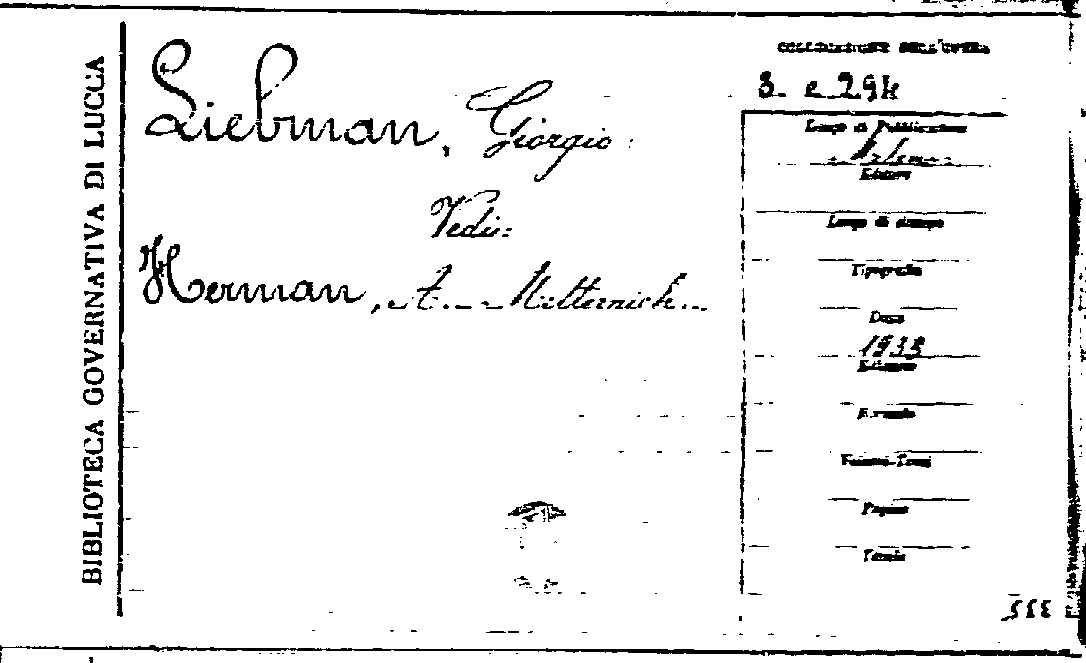 BIBLIOTECA GOVERNATIVA DI LUCCA
Liebman, Giorgio
Vedi:
Herman, A. Metternich
COLLOCAZIONE DELL'OPERA
3. e 294
Luogo di Pubblicazione
Editore
Luogo di stampa
Tipografia
Data
Edizione
Formato
Volume-Tomi
Pagine
Tavole